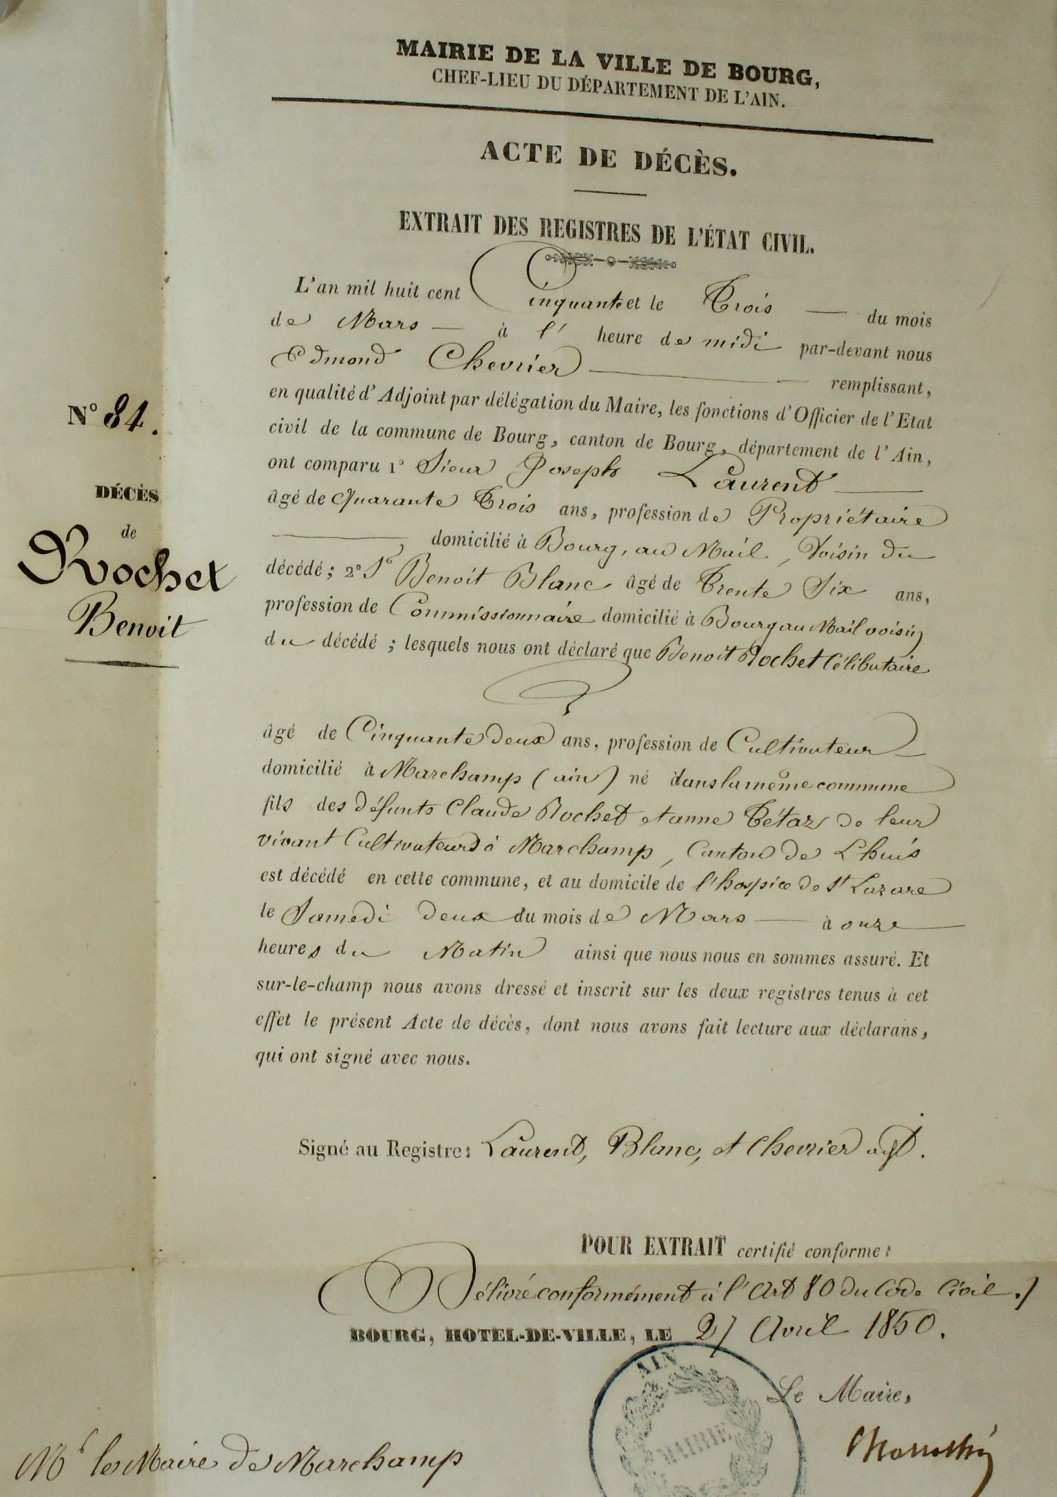 MAIRIE DE LA VILLE DE BOURG,
CHEF-LIEU DU DÉPARTEMENT DE L'AIN.
ACTE DE DÉCÈS.
EXTRAIT DES REGISTRES DE L'ÉTAT CIVIL.
L'an mil huit cent Cinquante et le Trois du mois
de Mars à l' heure de midi par-devant nous
Edmond Chevrier remplissant,
en qualité d'Adjoint par délégation du Maire, les fonctions d'Officier de l'Etat
civil de la commune de Bourg, canton de Bourg, département de l'Ain,
ont comparu 1° Sieur Joseph Laurent
âgé de Quarante Trois ans, profession de Propriétaire
domicilié à Bourg, au Mail, Voisin du
décédé; 2° Sr Benoit Blanc âgé de Trente Six ans,
profession de Commissionnaire domicilié à Bourg au Mail voisin
du décédé; lesquels nous ont déclaré que Benoit Rochet Célibataire
âgé de Cinquante deux ans, profession de Cultivateur
domicilié à Marchamp (ain) né dans la même commune
fils des défunts Claude Rochet et anne Tétaz de leur
vivant Cultivateurs à Marchamp, Canton de Lhuis
est décédé en cette commune, et au domicile de l'hospice de St Lazare
le Samedi deux du mois de Mars à onze
heures du Matin ainsi que nous nous en sommes assuré. Et
sur-le-champ nous avons dressé et inscrit sur les deux registres tenus à cet
effet le présent Acte de décès, dont nous avons fait lecture aux déclarans,
qui ont signé avec nous.
N° 84.
DÉCÈS
de
Rochet
Benoit
Signé au Registre: Laurent, Blanc, et Chevrier adjt.
POUR EXTRAIT certifié conforme:
Délivré conformément à l'Art 80 du Code Civil.
BOURG, HOTEL-DE-VILLE, LE 27 Avril 1850.
AIN
MAIRIE
Le Maire,
Mr le Maire de Marchamp